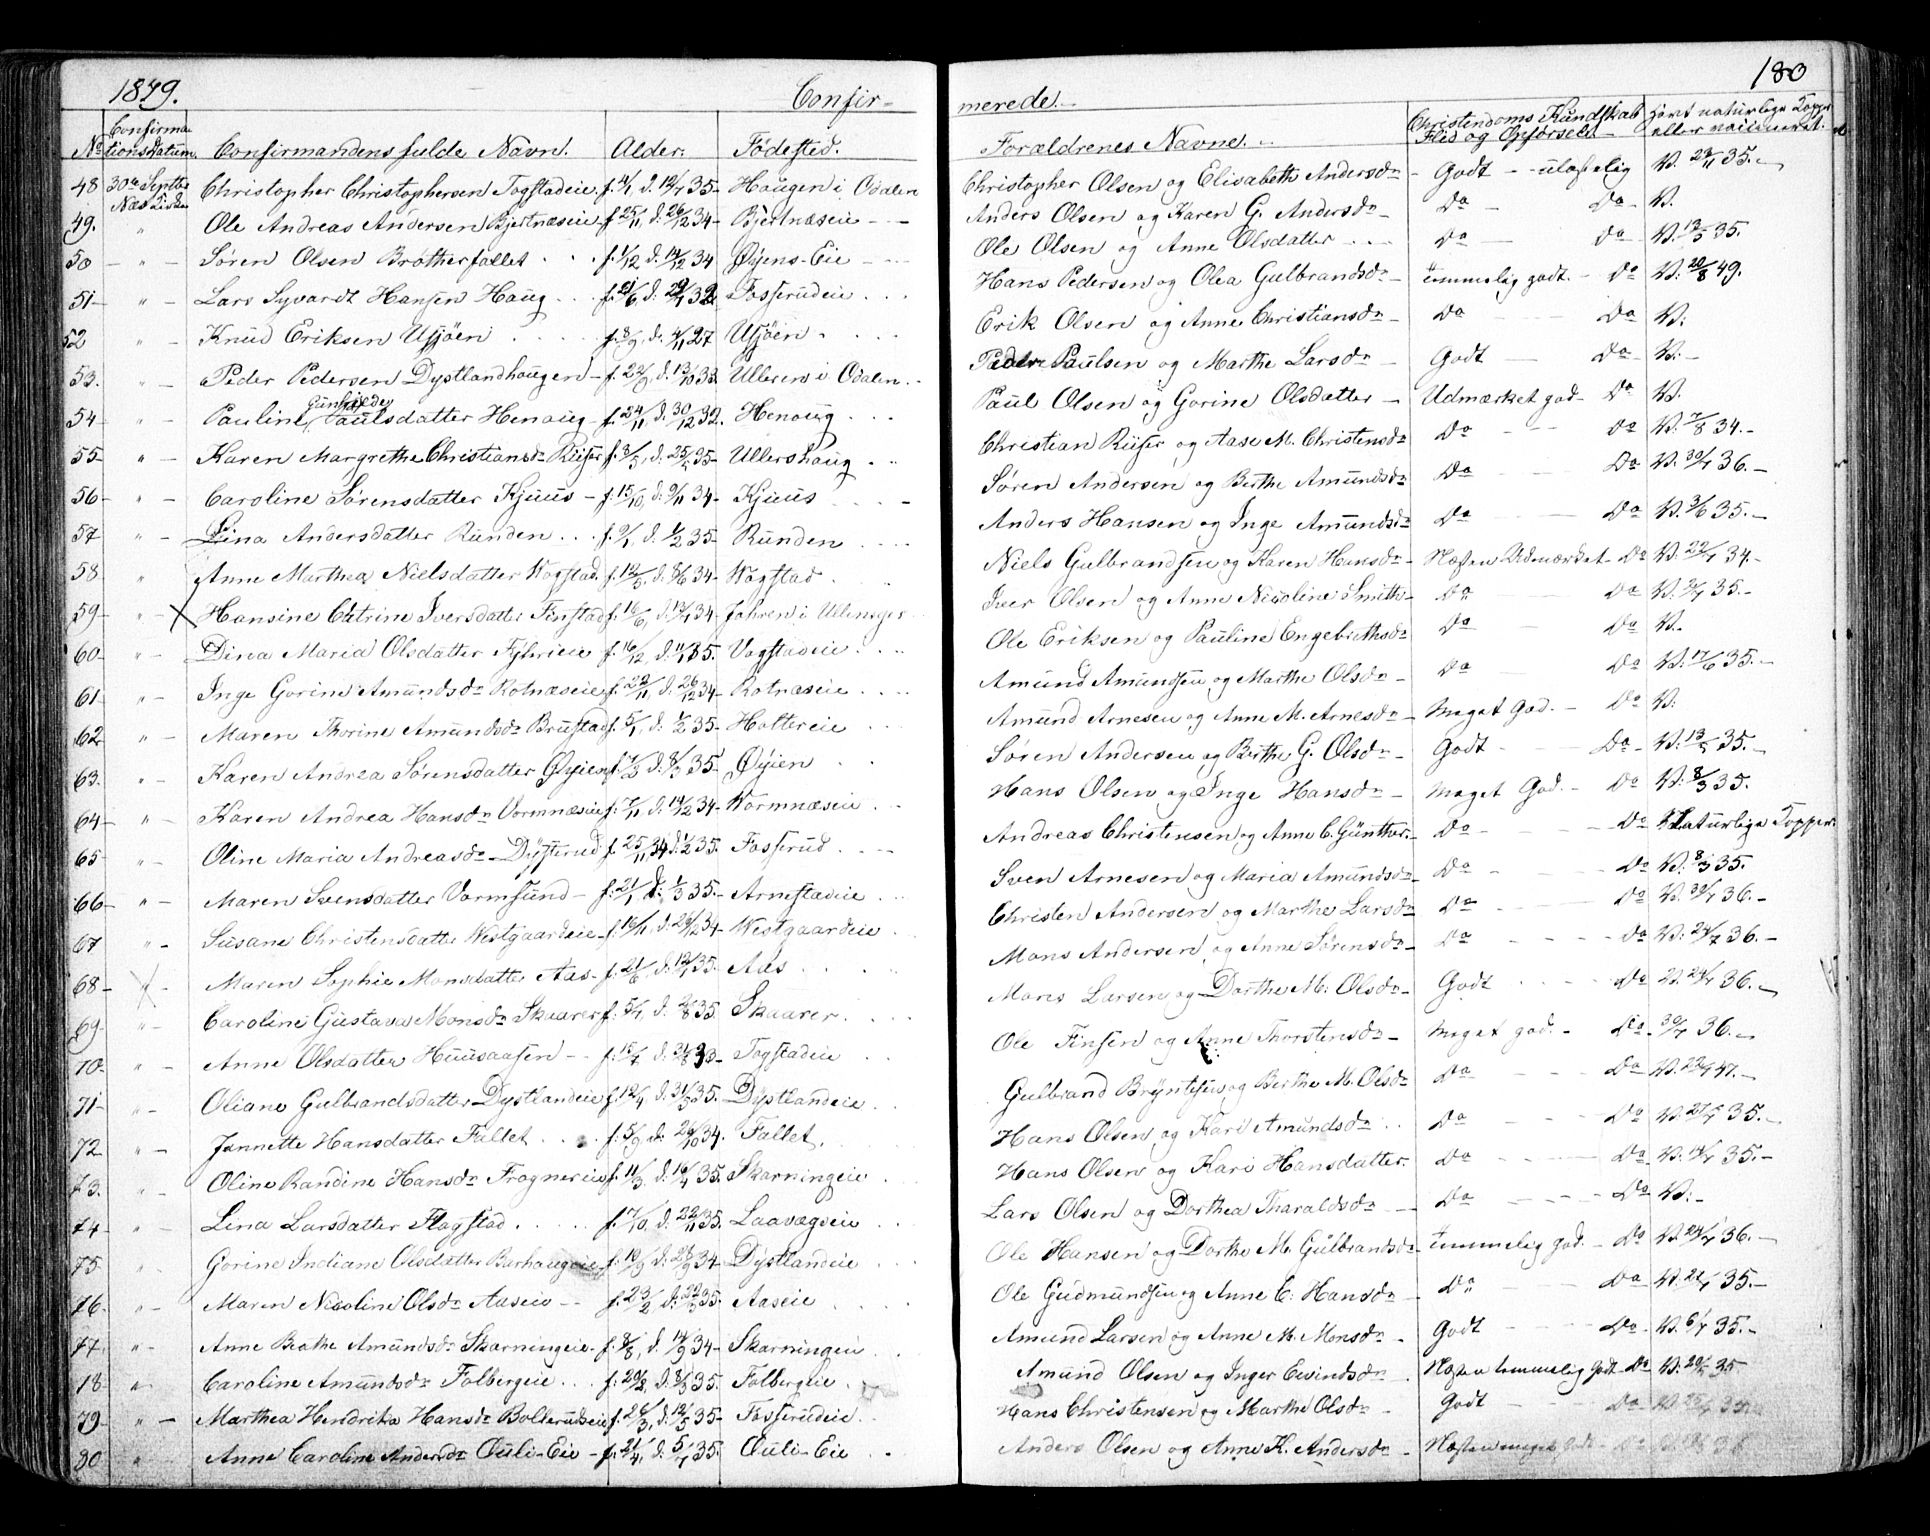 1849.
Confir-
merede.
180
No Confirmationsdatum. Confirmandens fulde Navn. Alder. Fødested. Forældrenes Navne. Christendoms Kundskab Flid og Opførsel havt naturlige Kopper eller vaccineret.
48 30te Septbr Næs Kirke Christopher Christophersen Togstadeie f. 4/1, d. 12/4 35 Haugen i Odalen Christopher Olsen og Elisabeth Andersdr Godt ulastelig V. 35.
49. " Ole Andreas Andersen Bjertnæseie f. 25/11, d. 26/12 34 Bjertnæseie Anders Olsen og Karen G. Andersdr Do Do V.
50 " Søren Olsen Brøtherfallet f. 1/12 d. 14/12 34 Øyens-Eie Ole Olsen og Anne Olsdatter Do Do V. 35.
51 " Lars Syvardt Hansen Haug Fosserudeie Hans Pedersen og Olea Gulbrandsdr temmelig godt. Do V. 20/8 49.
52 " Knud Eriksen Usjøen f. 8/9, d. 4/11 27 Usjøen Erik Olsen og Anne Christiansdr Do Do V.
53. " Peder Pedersen Dystlandhaugen Ulleren i Odalen Peder Paulsen og Marthe Larsdr Godt Do V.
54 " Pauline Gunhilde Paulsdatter Henoug f. 24/11 d. 30/12 32. Henoug Paul Olsen og Gorine Olsdatter Udmærket god Do V.
55 " Karen Margrethe Christiansdr Riiser f. 3/5, d. 35 Ullershoug Christian Riiser og Aase M. Christensdr Do Do V. 7/8 34.
56 " Caroline Sørensdatter Kjuus f. 15/10 d. 9/11 34 Kjuus Søren Andersen og Berthe Amundsdr Do Do V. 36.
57 " Lina Andersdatter Runden f. 9/1, d. 1/2 35 Runden Anders Hansen og Inge Amundsdr Do Do V. 3/6 35.
58 " Anne Marthea Nielsdatter Wogstad f. 12/5, d. 8/6 34 Wogstad Niels Gulbrandsen og Karen Hansdr Næsten Udmærket Do V. 34.
59 " Hansine Cathrine Iversdatter Finstad f. 16/6, d. 13/7 34 Jahren i Ullensager Iver Olsen og Anne Nicoline Smith Do Do V. 35.
60 " Dina Maria Olsdatter Fjhrieie f. 16/12 d. 35. Vogstadeie Ole Eriksen og Pauline Engebrethsdr Do Do V.
61 " Inge Gorine Amundsdr Rotnæseie f. 22/11 d. 26/12 34 Rotnæseie Amund Amundsen og Marthe Olsdr Do Do V. 17/6 35.
62 " Maren Thorine Amundsdr Brustad f. 5/1, d. 1/2 35. Holtereie Amund Arnesen og Anne M. Arnesdr Meget God. Do V.
63. " Karen Andrea Sørensdatter Øyien f. d. 8/3 35 Øyien Søren Andersen og Berthe G. Olsdr Godt Do V. 13/5 35.
64 " Karen Andrea Hansdr Vormnæseie f. 7/11 d. 14/12 34 Wormnæseie Hans Olsen og Inge Hansdr Meget God. Do V. 8/3 35.
65 " Oline Maria Andreasdr Dysterud f. 25/11 34 d. 1/2 35. Fosserud Andreas Christensen og Anne C. Günther Do Do Naturlige Kopper.
66 " Maren Svensdatter Vormsund f. 21/1 d. 1/3 35. Arnestadeie Sven Arnesen og Maria Amundsdr Do Do V. 8/3 35.
67 " Susane Christensdatter Westgaardeie f. 16/11, d. 26/12 34 Westgaardeie Christen Andersen og Marthe Larsdr Do Do V. 36.
68 " Maren Sophie Monsdatter Aas f. 21/6, d. 35. Aas Mons Andersen og Anne Sørensdr Do Do V. 24/7 36.
69 " Caroline Gustava Monsdr Skaarer f. 5/7, d. 2/8 35. Skaarer Mons Larsen og Dorthe M. Olsdr Godt Do V. 36.
70 " Anne Olsdatter Huusaasen f. 15/7 d. 33 Togstadeie Ole Finsen og Anne Thorstensdr Meget god. Do 36.
71 " Oliane Gulbrandsdatter Dystlandeie f. 12/4, d. 31/5 35. Dystlandeie Gulbrand Bryntesen og Berthe M. Olsdr Do Do V. 47.
72 " Jannette Hansdatter Fallet f. 5/9 d. 26/10 34. Fallet Hans Olsen og Kari Amundsdr Do Do V. 35.
73. " Oline Randine Hansdr Frognereie f. 11/3, d. 19/4 35. Skarningeie Hans Olsen og Kari Hansdatter. Do Do V. 35.
74 " Lina Larsdatter Flogstad f. 17/10, d. 22/11 35. Laavægeie Lars Olsen og Dorthea Tharaldsdr Do Do V.
75 " Gorine Indiane Olsdatter Barhaugeie d. 28/9 34 Dystlandeie Ole Hansen og Dorthe M. Gulbrandsdr temmelig god. Do V. 36.
76 " Maren Nicoline Olsdr Aaseie f. 23/2 d. 22/3 35. Aaseie Ole Gudmundsen og Anne C. Hansdr Do Do V. 35.
77. " Anne Beathe Amundsdr Skarningeie f. 8/8, d. 14/9 34 Skarningeie Amund Larsen og Anne M. Monsdr Godt Do V. 6/7 35.
78 " Caroline Amundsdr Folbergeie f. 20/2, d. 8/3 35. Folbergeie Amund Olsen og Inger Eivindsdr Næsten temmelig godt Do V. 35
79 " Marthea Hendrika Hansdr Bollerudseie f. 26/3, d. 35 Fosserudeie Hans Christensen og Marthe Olsdr Godt Do V.
80 " Anne Caroline Andersdr Ouli-Eie f. 21/4, d. 5/7 35. Ouli-Eie Anders Olsen og Anne K. Andersdr Næsten meget godt Do